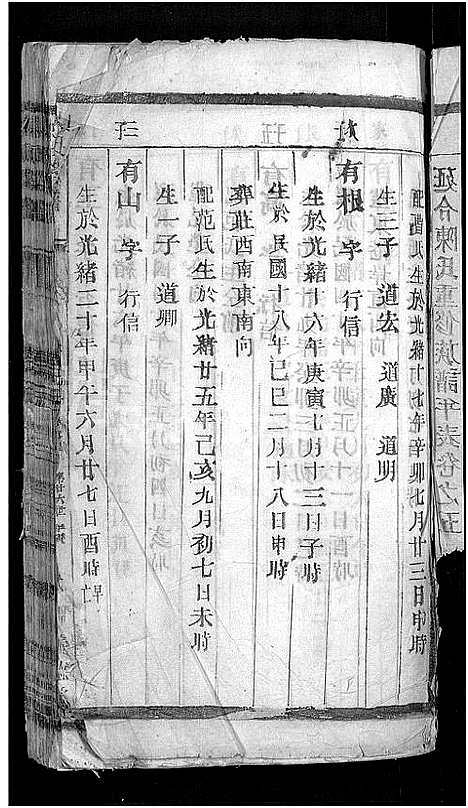 延令陳氏重修族譜年表卷之五
配 氏生於光緒十七年辛卯七月廿三日申時
生三子 道宏 道廣 道明
有根 字 行信
生於光緒十六年庚寅七月十三日子時
生於民國十八年己巳二月十八日申時
葬莊西南東南向
配范氏生於光緒廿五年己亥九月初七日未時
生一子 道卿
有山 字 行信
生於光緒二十年甲午六月廿七日酉時亡